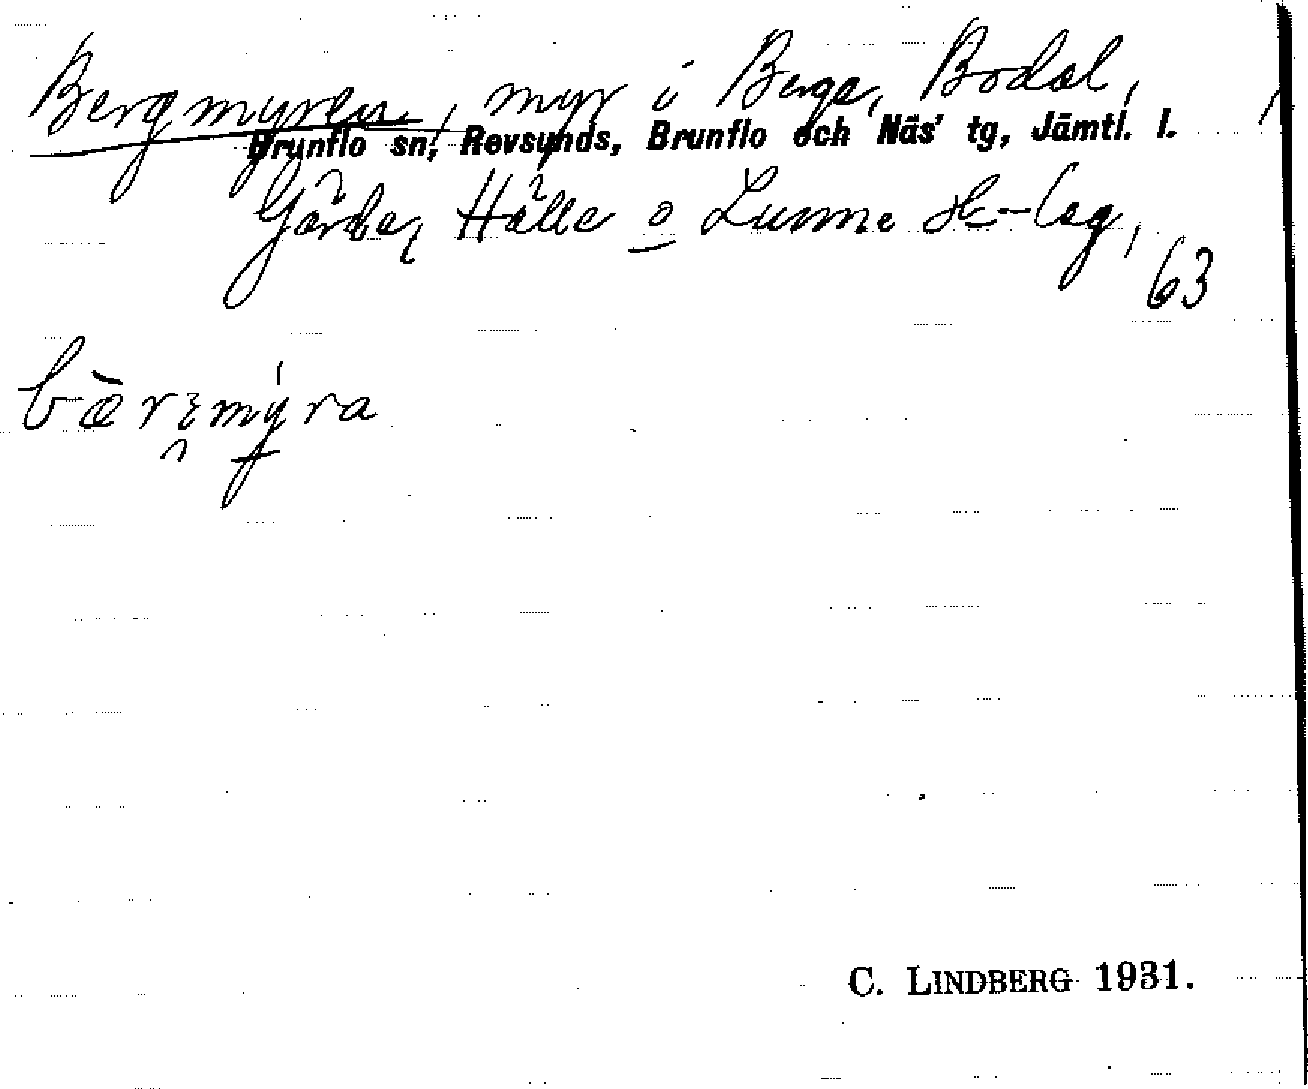 Bergmyren, myr i Berge, Bodal,
Brunflo sn, Revsunds, Brunflo och Näs' tg, Jämtl. l.
Gärde, Hälle o Lunne sk-lag,
63
C. LINDBERG 1931.